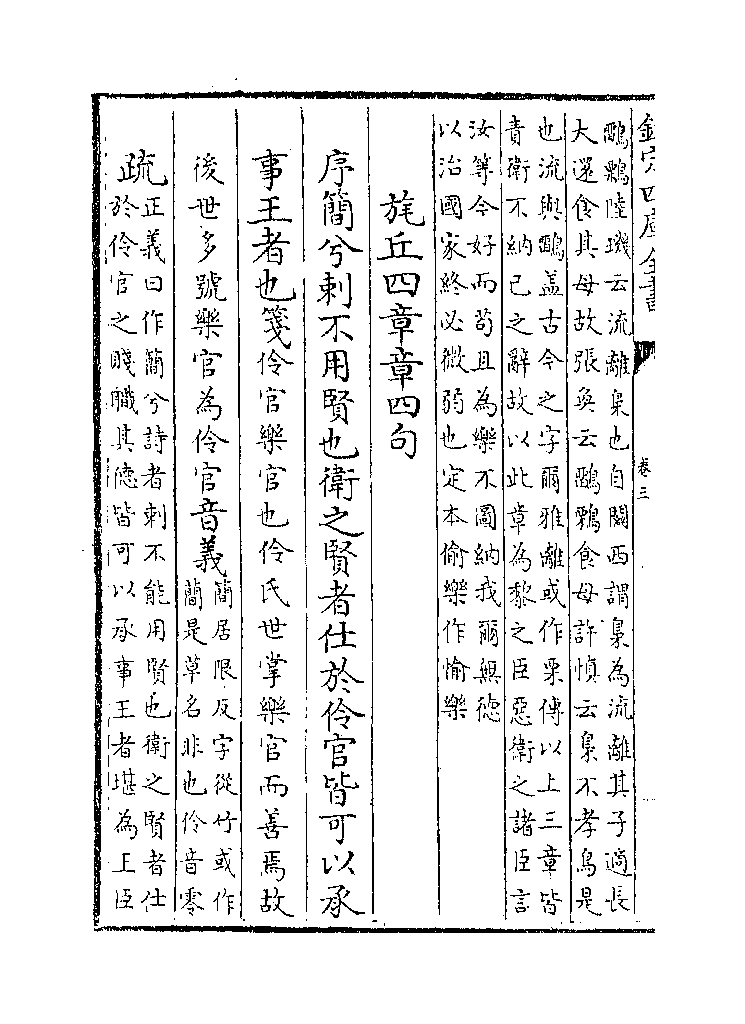 欽定四庫全書
卷三
鶹鷅陸璣云流離梟也自關西謂梟為流離其子適長
大還食其母故張奐云鶹鷅食母許慎云梟不孝鳥是
也流與鶹蓋古今之字爾雅離或作栗傳以上三章皆
責衛不納己之辭故以此章為黎之臣惡衛之諸臣言
汝等今好而苟且為樂不圖納我爾無德
以治國家終必微弱也定本偷樂作愉樂
旄丘四章章四句
序簡兮刺不用賢也衛之賢者仕於伶官皆可以承
事王者也箋伶官樂官也伶氏世掌樂官而善焉故
後世多號樂官為伶官音義簡居限反字從竹或作
簡是草名非也伶音零
疏正義曰作簡兮詩者刺不能用賢也衛之賢者仕
於伶官之賤職其德皆可以承事王者堪為王臣